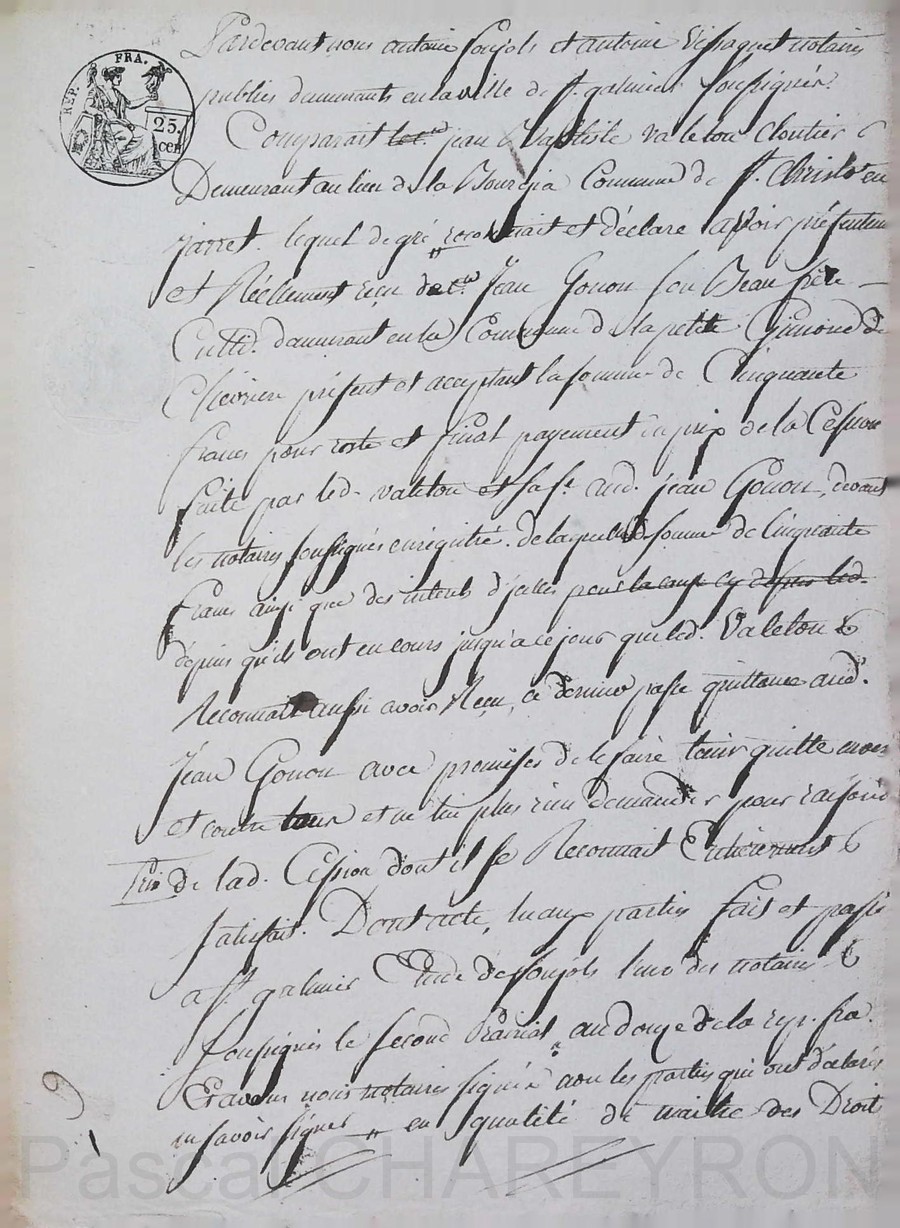 REP. FRA.
25. cen
Pardevant nous antoine soujols et antoine Vissaguet notaires
publics demeurants en la ville de st. galmier soussignes.
Comparait jean Baptiste valetou cloutier
Demeurant au lieu de la Commune de st. Christo en
jarret. lequel de gré reconnait et déclare avoir présentem
et Réellement reçu de Jean Gonon son Beau frère
Cultiv. demeurant en la Commune de la petite Gimond
présent et acceptant la somme de Cinquante
francs pour reste et final payement du prix de la Cession
faite par led. valetou et sa fe. aud. jean Gonon, devant
les notaires soussignés enregistré. de laquelle somme de Cinquante
francs ainsi que des interets d'jcelles pour la cause
depuis qu'ils ont en cours jusqu'a ce jour que led. Valetou
Reconnait aussi avoir Reçu, ce dernier passe quittance aud.
Jean Gonon avec promesses de le faire tenir quitte envers
et contre tous et ne lui plus rien demander pour raison
Prix de lad. Cession dont il se Reconnait Entièrement
satisfait. Dont acte, lu aux parties fait et passé
a st. galmier Etude de soujols l'un des notaires
soussignés le second Prairial an douze de la rep. fra.
Et avons nous notaires signé non les parties qui ont déclarés
ne savoir signer en qualité de maitre des Droit
Pascal CHAREYRON